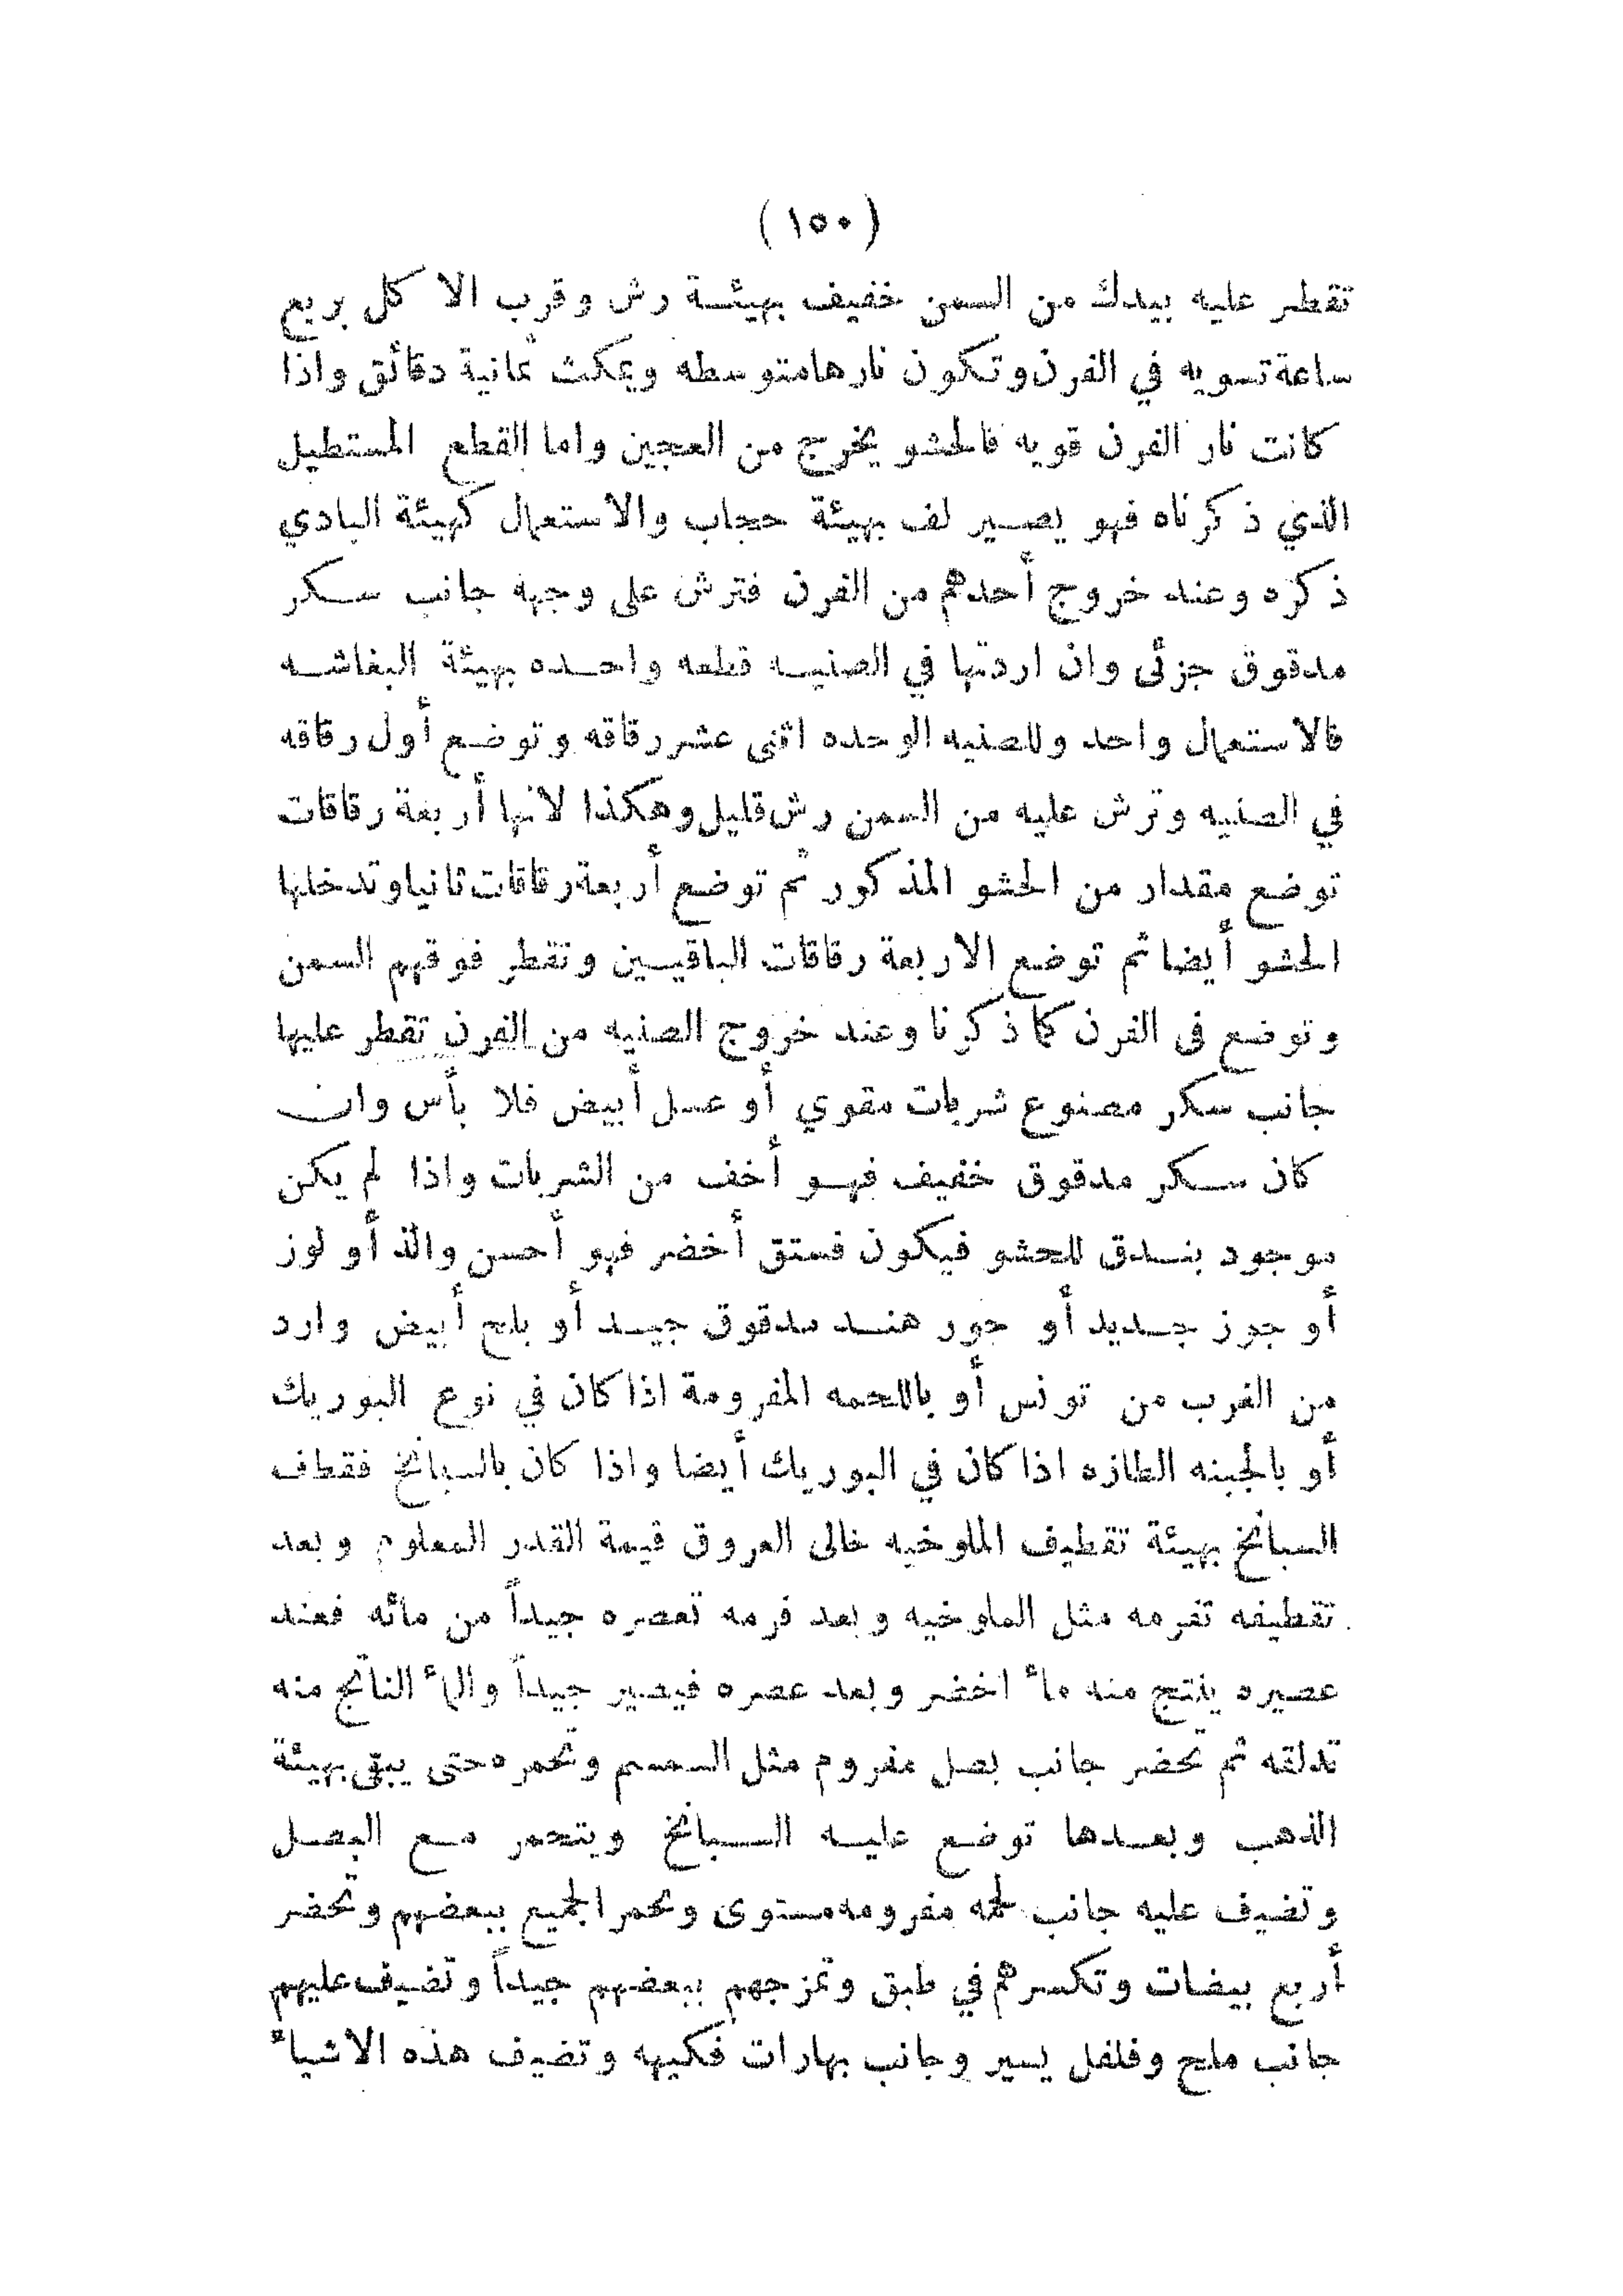 (١٥٠)
تقطر عليه بيدك من السمن خفيف بهيئة رش وقرب الاكل بربع
ساعة تسويه في الفرن وتكون نارها متوسطه ويمكث ثمانية دقائق واذا
كانت نار الفرن قويه فالحشو يخرج من العجين واما القطع المستطيل
الذي ذكرناه فهو يصير لف بهيئة حجاب والاستعمال كهيئة البادي
ذكره وعند خروج أحدهم من الفرن فترش على وجهه جانب سكر
مدقوق جزئى وان اردتها في الصنيه قطعه واحده بهيئة البغاشه
فالاستعمال واحد وللصنيه الوحده اثنى عشر رقاقه وتوضع أول رقاقه
في الصنيه وترش عليه من السمن رش قليل وهكذا لانها أربعة رقاقات
توضع مقدار من الحشو المذكور ثم توضع أربعة رقاقات ثانيا وتدخلها
الحشو أيضا ثم توضع الاربعة رقاقات الباقيين وتقطر فوقهم السمن
وتوضع فى الفرن كما ذكرنا وعند خروج الصنيه من الفرن تقطر عليها
جانب سكر مصنوع شربات مقوي أو عسل أبيض فلا بأس وان
كان سكر مدقوق خفيف فهو أخف من الشربات واذا لم يكن
موجود بندق للحشو فيكون فستق أخضر فهو أحسن والذ أو لوز
أو جوز جديد أو جور هند مدقوق جيد أو بلح أبيض وارد
من الغرب من تونس أو باللحمه المفرومة اذا كان في نوع البوريك
أو بالجبنه الطازه اذا كان في البوريك أيضا واذا كان بالسبانخ فقطف
السبانخ بهيئة تقطيف الملوخيه خالى العروق قيمة القدر المعلوم وبعد
تقطيفه تفرمه مثل الملوخيه وبعد فرمه تعصره جيداً من مائه فعند
عصيره ينتج منه ماء اخضر وبعد عصره فيصير جيداً والماء الناتج منه
تدلقه ثم تحضر جانب بصل مفروم مثل السمسم وتحمره حتى يبقى بهيئة
الذهب وبعدها توضع عليه السبانخ ويتحمر مع البصل
وتضيف عليه جانب لحمه مفرومه مستوى وتحمر الجميع ببعضهم وتحضر
أربع بيضات وتكسرهم في طبق وتمزجهم ببعضهم جيداً وتضيف عليهم
جانب ملح وفلفل يسير وجانب بهارات فكيهه وتضيف هذه الاشياء